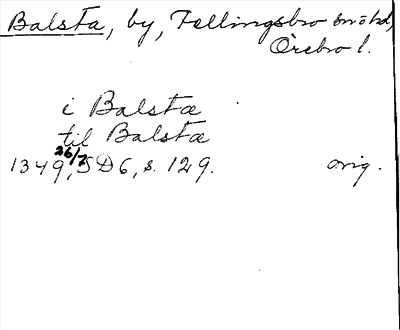 Balsta, by, Fellingsbro snöhd,
Örebro l.
i Balsta
til Balsta
1349 26/7, SD 6, s. 129. orig.